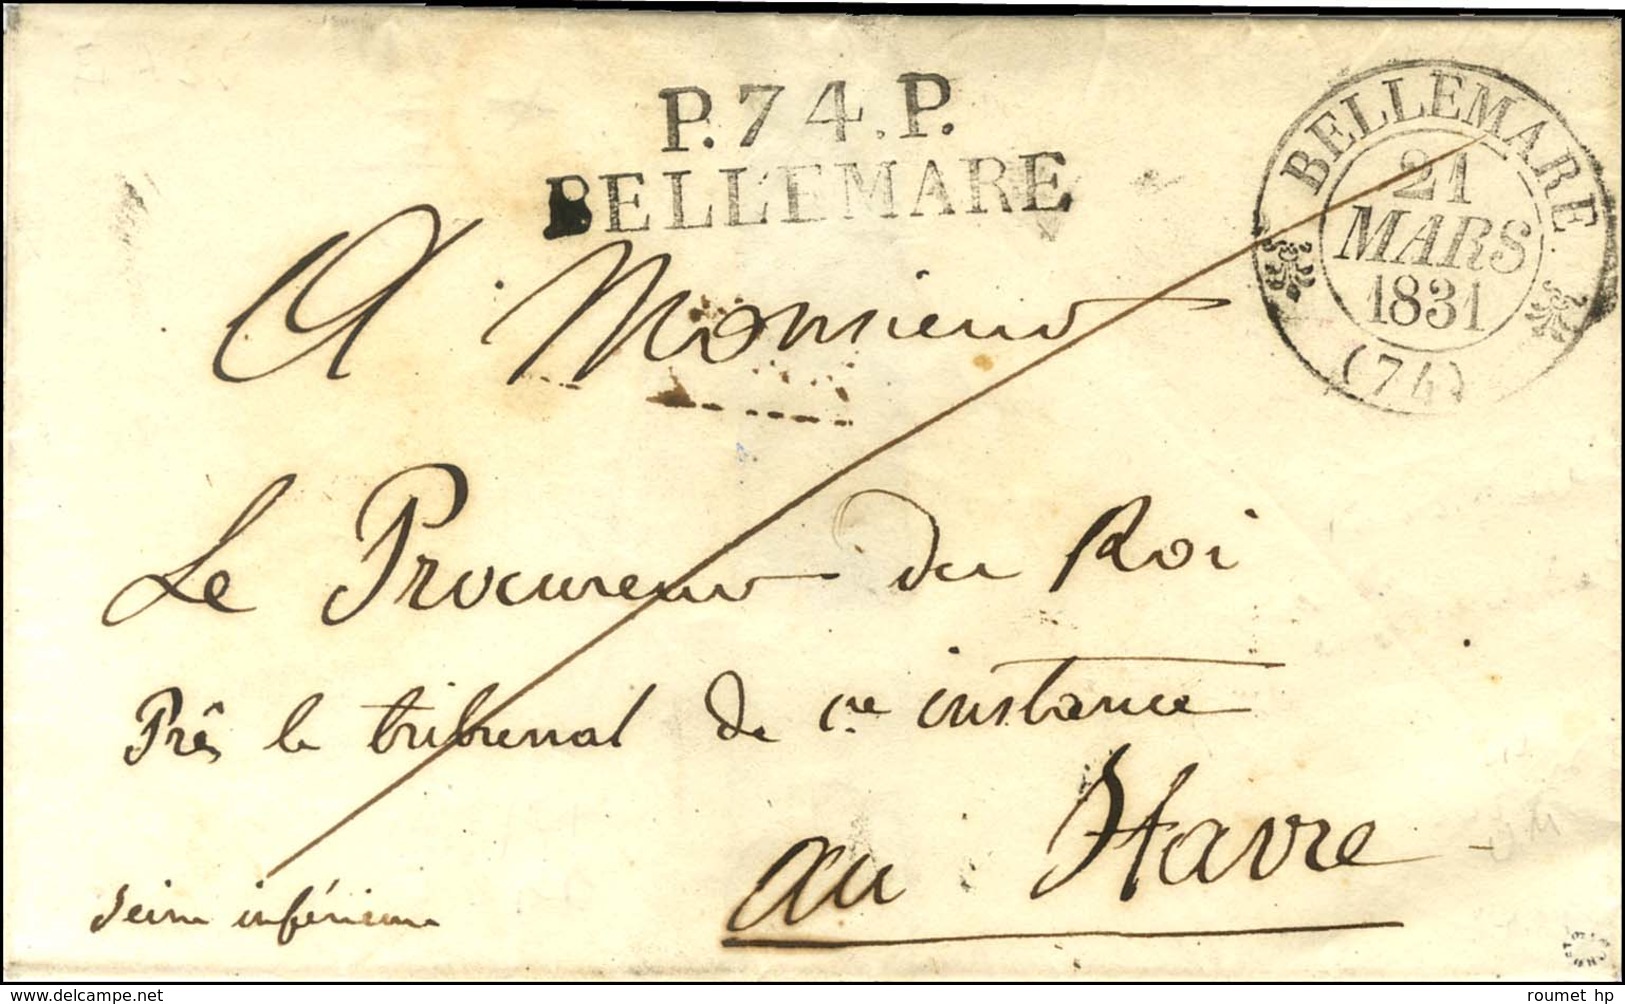 P.74.P.
BELLEMARE
BELLEMARE
21
MARS
1831
(74)
A Monsieur
Le Procureur du Roi
Près le tribunal de 1re instance
au Havre
Seine inférieure
roumet hp
www.delcampe.net